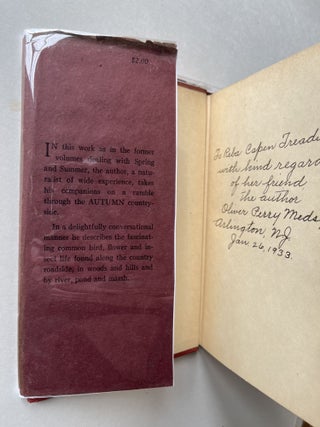 $2.00
IN this work as in the former
volumes dealing with Spring
and Summer, the author, a natu-
ralist of wide experience, takes
his companions on a ramble
through the AUTUMN country-
side.
In a delightfully conversational
manner he describes the fascinat-
ing common bird, flower and in-
sect life found along the country
roadside, in woods and hills and
by river, pond and marsh.
To Reba Capen Treadw
with kind regard
of her friend
The author
Oliver Perry Meds
Arlington, NJ
Jan. 26, 1933.